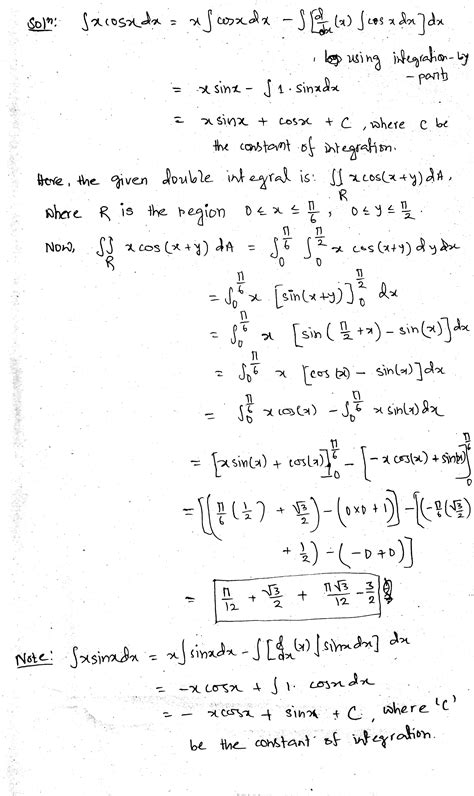 Solⁿ: ∫x cosx dx = x∫cosx dx − ∫[d/dx (x) ∫cos x dx] dx
, using integration-by
-parts
= x sinx − ∫1· sinx dx
= x sinx + cosx + C, where C be
the constant of integration.
Here, the given double integral is: ∬_R x cos(x+y) dA,
where R is the region 0 ≤ x ≤ π/6, 0 ≤ y ≤ π/2.
Now, ∬_R x cos(x+y) dA = ∫_0^{π/6} ∫_0^{π/2} x cos(x+y) dy dx
= ∫_0^{π/6} x [sin(x+y)]_0^{π/2} dx
= ∫_0^{π/6} x [sin(π/2 + x) − sin(x)] dx
= ∫_0^{π/6} x [cos(x) − sin(x)] dx
= ∫_0^{π/6} x cos(x) − ∫_0^{π/6} x sin(x) dx
= [x sin(x) + cos(x)]_0^{π/6} − [−x cos(x) + sin(x)]_0^{π/6}
= [(π/6 (1/2) + √3/2) − (0×0+1)] − [(−π/6 (√3/2)
+ 1/2) − (−0+0)]
= π/12 + √3/2 + π√3/12 − 3/2
Note: ∫x sinx dx = x∫sinx dx − ∫[d/dx (x) ∫sinx dx] dx
= −x cosx + ∫1· cosx dx
= − x cosx + sinx + C, where 'C'
be the constant of integration.